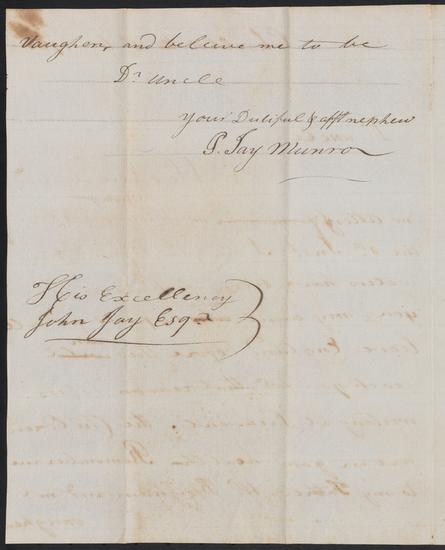 Vaughen, and beleive me to be
Dr. Uncle
Your Dutiful & afft nephew
P. Jay Munro
His Excellency
John Jay Esqr.